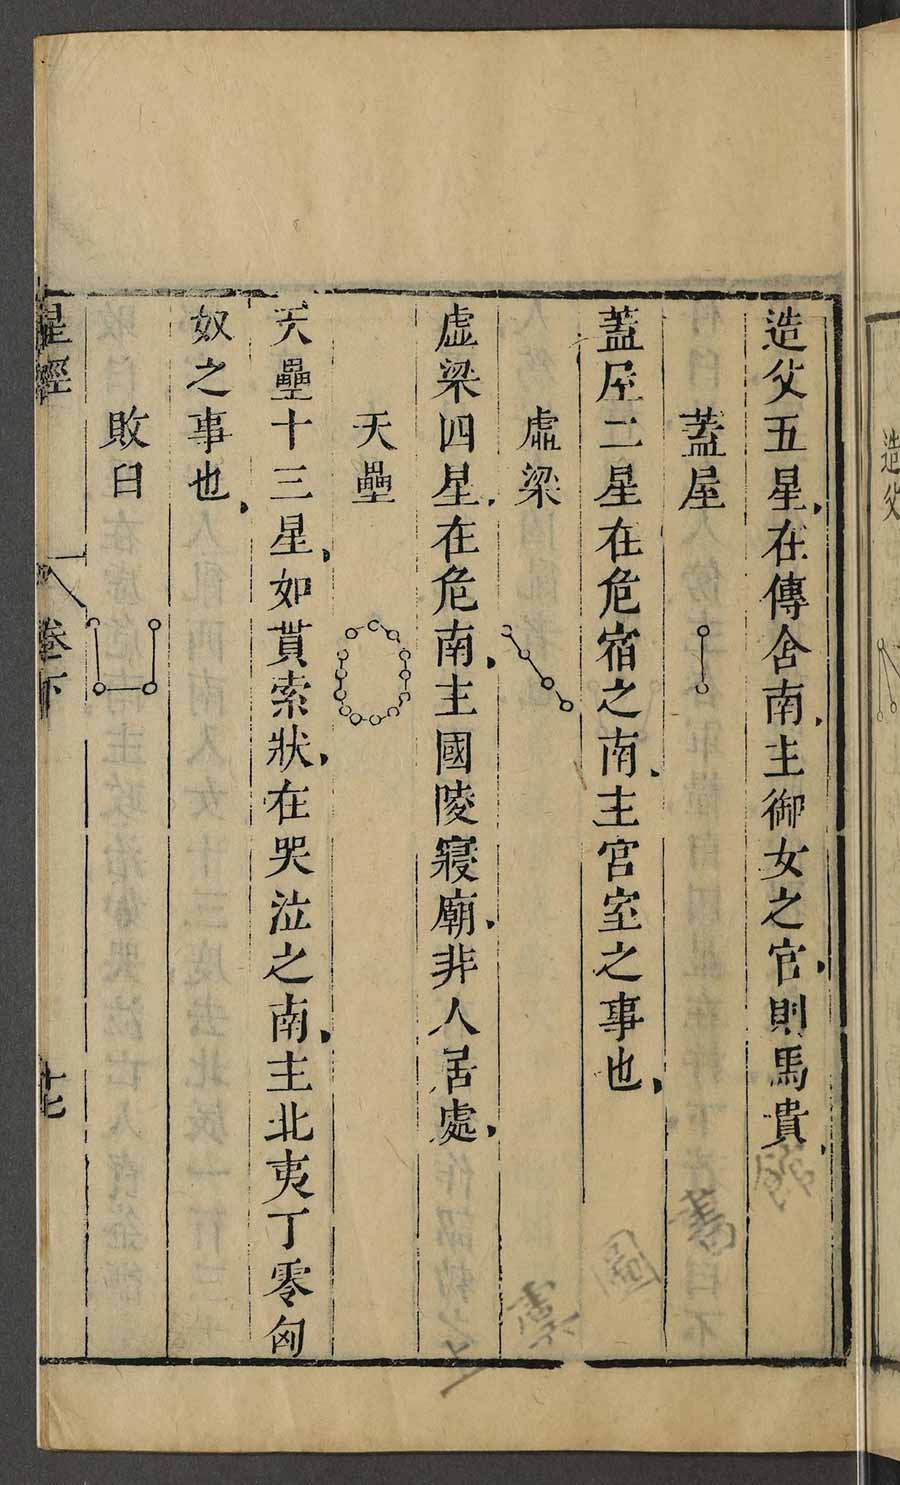 造父五星在傳舍南主御女之官則馬貴
蓋屋
蓋屋二星在危宿之南主宮室之事也
虛梁
虛梁四星在危南主國陵寢廟非人居處
天壘
天壘十三星如貫索狀在哭泣之南主北夷丁零匈
奴之事也
敗臼
星經
卷下
七
造父